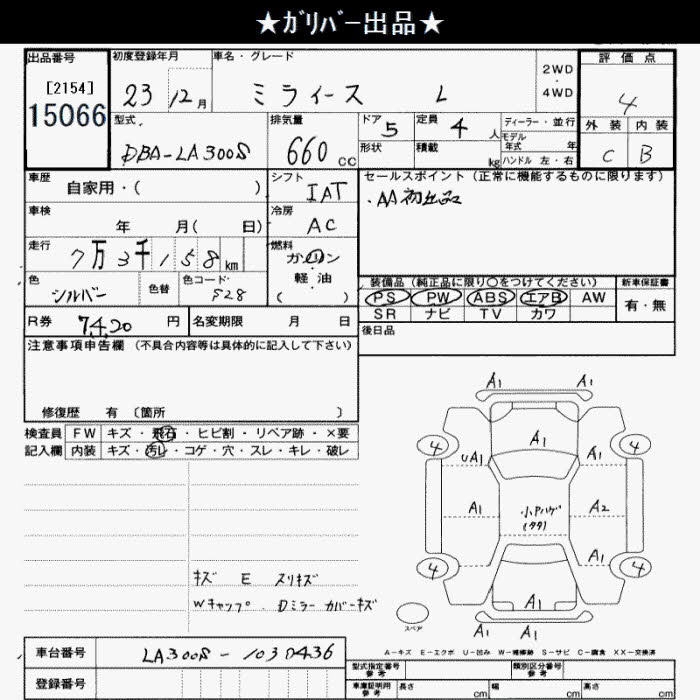 ★ガリバー出品★
出品番号 初度登録年月 車名・グレード 評価点
[2154] 15066 23 12月 ミライース L 2WD ・ 4WD 4
型式 排気量 ドア 定員 ディーラー・並行 外装 内装
DBA-LA300S 660cc 5 4人 モデル年式 年 C B
形状 積載 kg ハンドル 左・右
車歴 シフト セールスポイント (正常に機能するものに限ります)
自家用・( ) IAT ・AA初出品
車検 冷房
年 月( 日) AC
走行 燃料
7万3千158km ガソリン
軽・油
色 色替 色コード ( ) 装備品 (純正品に限り○をつけてください) 新車保証書
シルバー S28 PS PW ABS エアB AW 有・無
SR ナビ TV カワ
R券 7420円 名変期限 月 日 後日品
注意事項申告欄 (不具合内容等は具体的に記入して下さい)
修復歴 有 〔箇所 〕
検査員 FW キズ・飛石・ヒビ割・リペア跡・×要
記入欄 内装 キズ・汚レ・コゲ・穴・スレ・キレ・破レ
A1 A1
4 A1 4
UA1 A1
A1 小Pハゲ (タタ) A2
A1
4 4
A1
A1 A1
スペア
キズ E スリキズ
Wキャップ . Dミラーカバーキズ
A-キズ E-エクボ U-凹み W-補修跡 S-サビ C-腐食 XX-交換済
車台番号 LA300S-1030436 型式指定番号 参考 類別区分番号 参考
登録番号 車庫証明用 参考 長さ cm 幅 cm 高さ cm